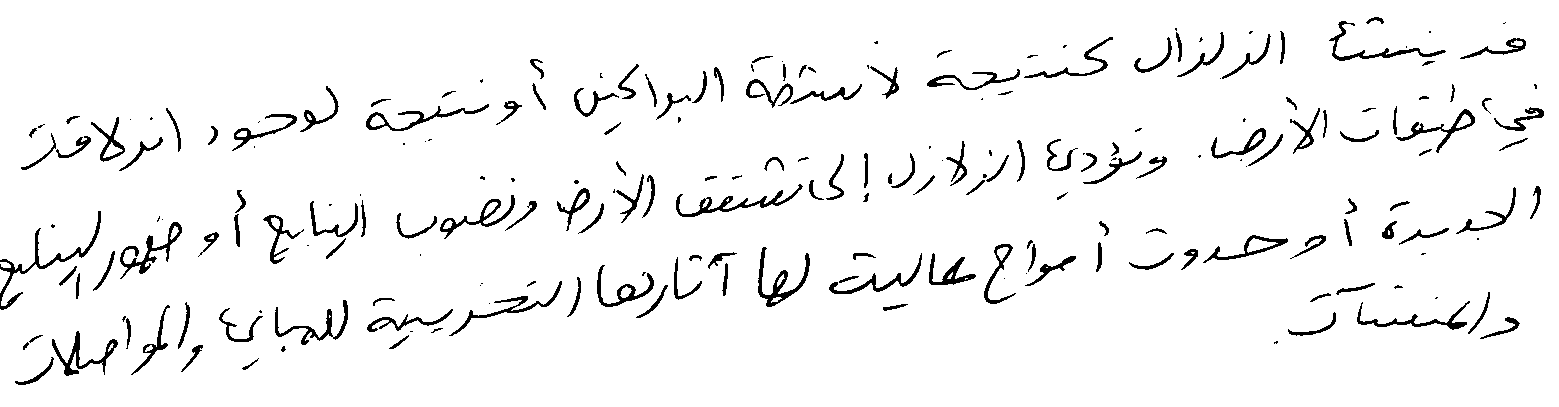 قد ينشأ الزلزال كنتيجة لأنشطة البراكين أو نتيجة لوجود انزلاقات
في طبقات الأرض. وتؤدي الزلازل إلى تشقق الأرض ونضوب الينابيع أو ظهور الينابيع
الجديدة أو حدوث أمواج عالية لها آثارها التخريبية للمباني والمواصلات
والمنشآت.